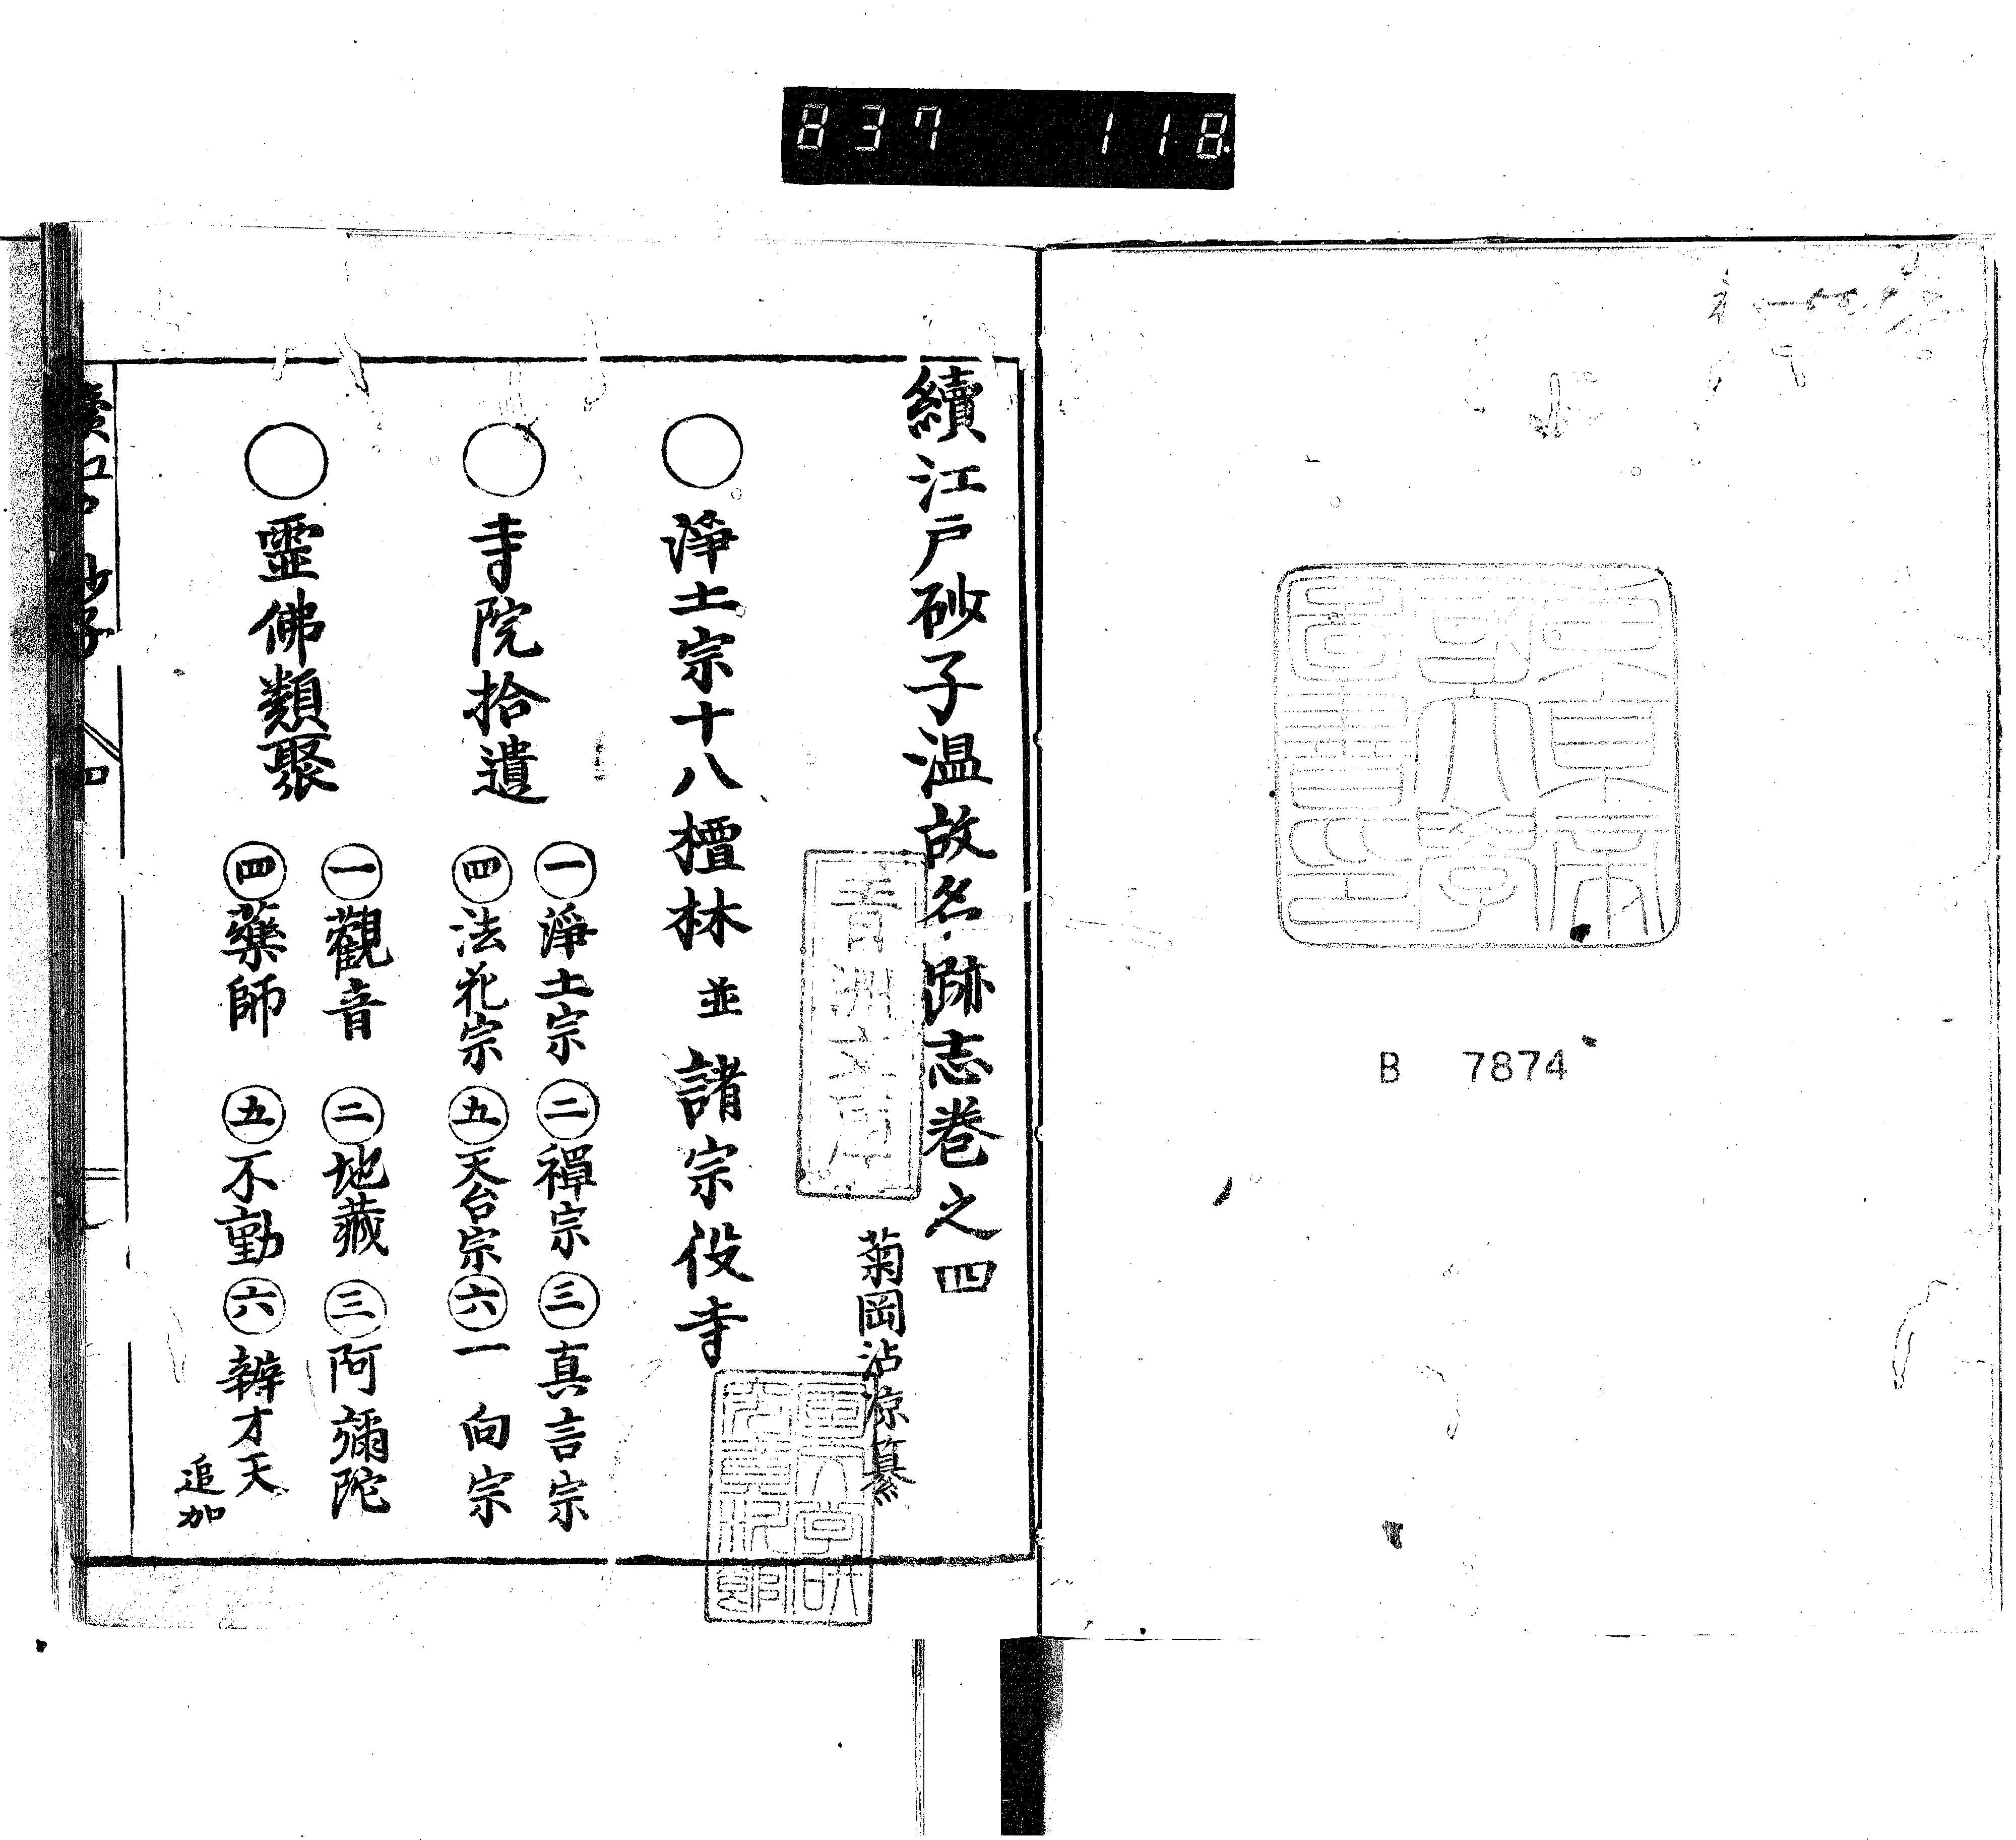 837 118
東京帝
國大學
圖書印
B 7874
續江戸砂子温故名跡志巻之四
青洲文庫
菊岡沾凉纂
○浄土宗十八檀林 並 諸宗役寺
○寺院拾遺
㊀浄土宗 ㊁禪宗 ㊂真言宗
㊃法花宗 ㊄天台宗 ㊅一向宗
○霊佛類聚
㊀觀音 ㊁地蔵 ㊂阿彌陀
㊃藥師 ㊄不動 ㊅辨才天
追加